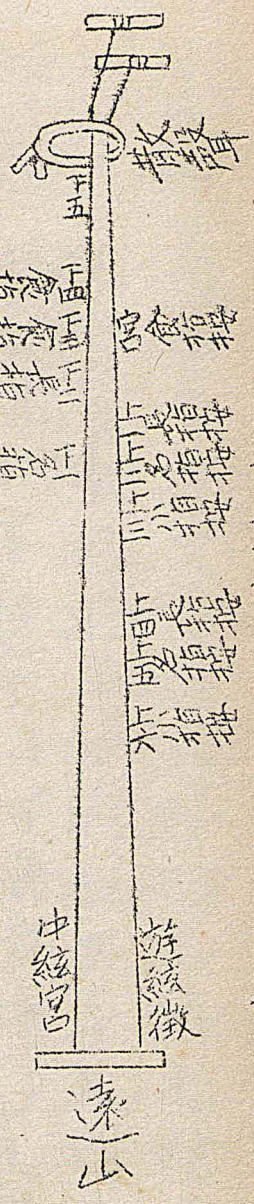 散聲
下五
下四食指
下三食指
下二長指
下一名指
宮食指按
上一長指按
上二名指按
上三小指按
上四長指按
上五名指按
上六小指按
中絃宮
遊絃徵
遠山